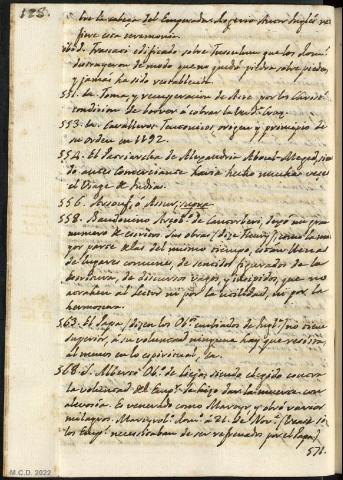 128.
bre la cabeza del Emperador. Rogerio Autor Inglés re-
fiere esa ceremonia.
Frascati edificado sobre Tusculum que los Roma.
destruyeron de modo que no quedó piedra sobre piedra,
y jamas ha sido restablecido.
551. La Toma, y recuperacion de Acre por los Christ.
condicion de borrar ó cobrar la
553. Los Cavalleros Teutonicos, origen y principio de
su orden en 1192.
554. El Patriarcha de Alexandria Aboul-Meged, sien
do antes Comerciante havia hecho muchas veces
el Viage de India.
556. Arsouf, ó Assur, supra
558. Baudouino Arzob.º de Cantorberi, dejó un gran
numero de escritos. Sus obras, (dice Fleury) como la ma
yor parte de las del mismo tiempo, estan llenas
de lugares comunes, de sentidos figurados de la
escritura, de discursos vagos, é insipidos, que no
atrahen al Lector ni por la utilidad, ni por la
hermosura.
563. El Papa, (dicen los Ob.ˢ embiados de Ingl.ª) no tiene
superior, a su voluntad ninguna hay que resista,
al menos en lo espiritual, &a.
568. S. Alberto Ob.º de Lieja, siendo elegido contra
la voluntad del Emp.ʳ le hizo dar la muerte con
alevosia. Es venerado como Martyr, y obró varios
milagros. Martyrol.º Rom.º á 21. de Nov.ᵉ (Vease si
los Emp.ˢ necesitaban de ser refrenados por el Papa)
571.
M.C.D. 2022